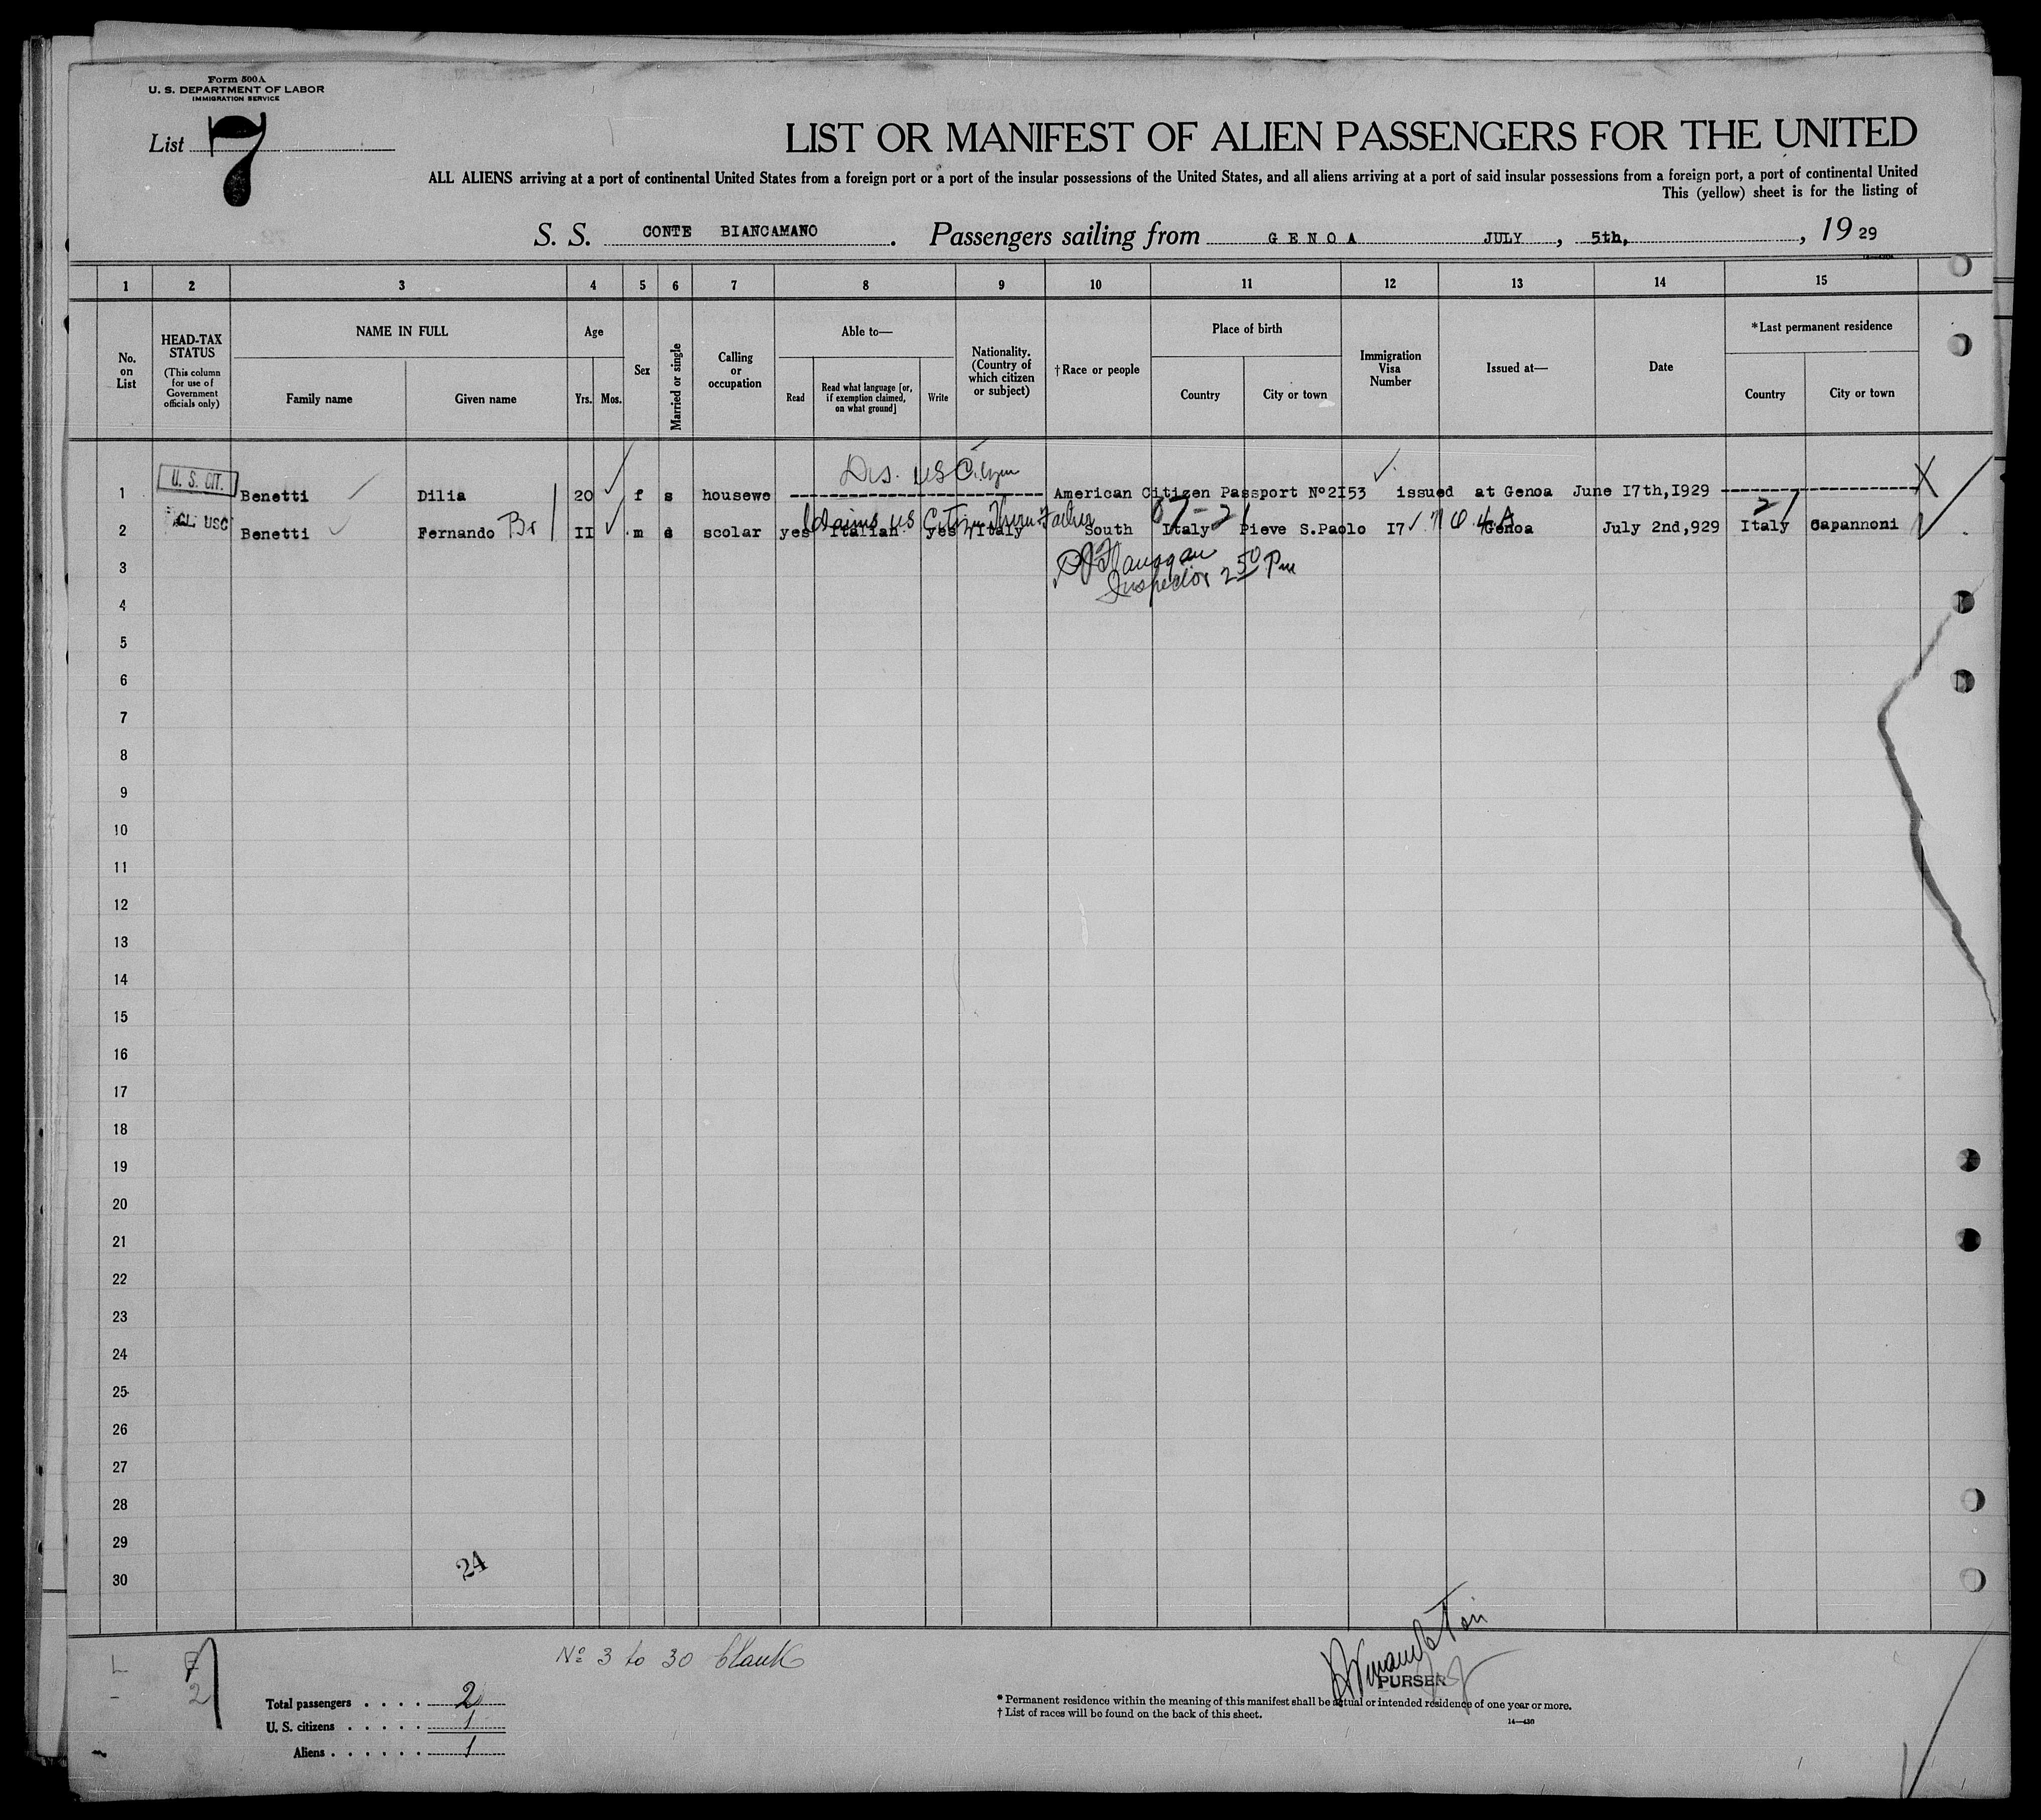 Form 500A
U. S. DEPARTMENT OF LABOR
IMMIGRATION SERVICE
List 7
LIST OR MANIFEST OF ALIEN PASSENGERS FOR THE UNITED
ALL ALIENS arriving at a port of continental United States from a foreign port or a port of the insular possessions of the United States, and all aliens arriving at a port of said insular possessions from a foreign port, a port of continental United
This (yellow) sheet is for the listing of
S. S. CONTE BIANCAMANO. Passengers sailing from GENOA JULY, 5th, , 1929
1 2 3 4 5 6 7 8 9 10 11 12 13 14 15
No. on List
HEAD-TAX STATUS
(This column for use of Government officials only)
NAME IN FULL
Family name
Given name
Age
Yrs. Mos.
Sex
Married or single
Calling or occupation
Able to—
Read
Read what language [or, if exemption claimed, on what ground]
Write
Nationality. (Country of which citizen or subject)
†Race or people
Place of birth
Country
City or town
Immigration Visa Number
Issued at—
Date
*Last permanent residence
Country
City or town
Dis. US Citizen
1 U. S. CIT. Benetti Dilia 20 f s housewe American Citizen Passport Nº2I53 issued at Genoa June I7th,I929 X
Claims US Citzn Thru Father 87-21 21
2 CL. USC Benetti Fernando Br II m s scolar yes Italian yes Italy South Italy Pieve S.Paolo I7 Genoa July 2nd,929 Italy Capannoni
3 Flanagan
4 Inspector 2 50 Pm
5
6
7
8
9
10
11
12
13
14
15
16
17
18
19
20
21
22
23
24
25
26
27
28
29
24
30
Nº 3 to 30 blank
PURSER
Total passengers . . . . 2
U. S. citizens . . . . . 1
Aliens . . . . . . 1
* Permanent residence within the meaning of this manifest shall be actual or intended residence of one year or more.
† List of races will be found on the back of this sheet.
14—430